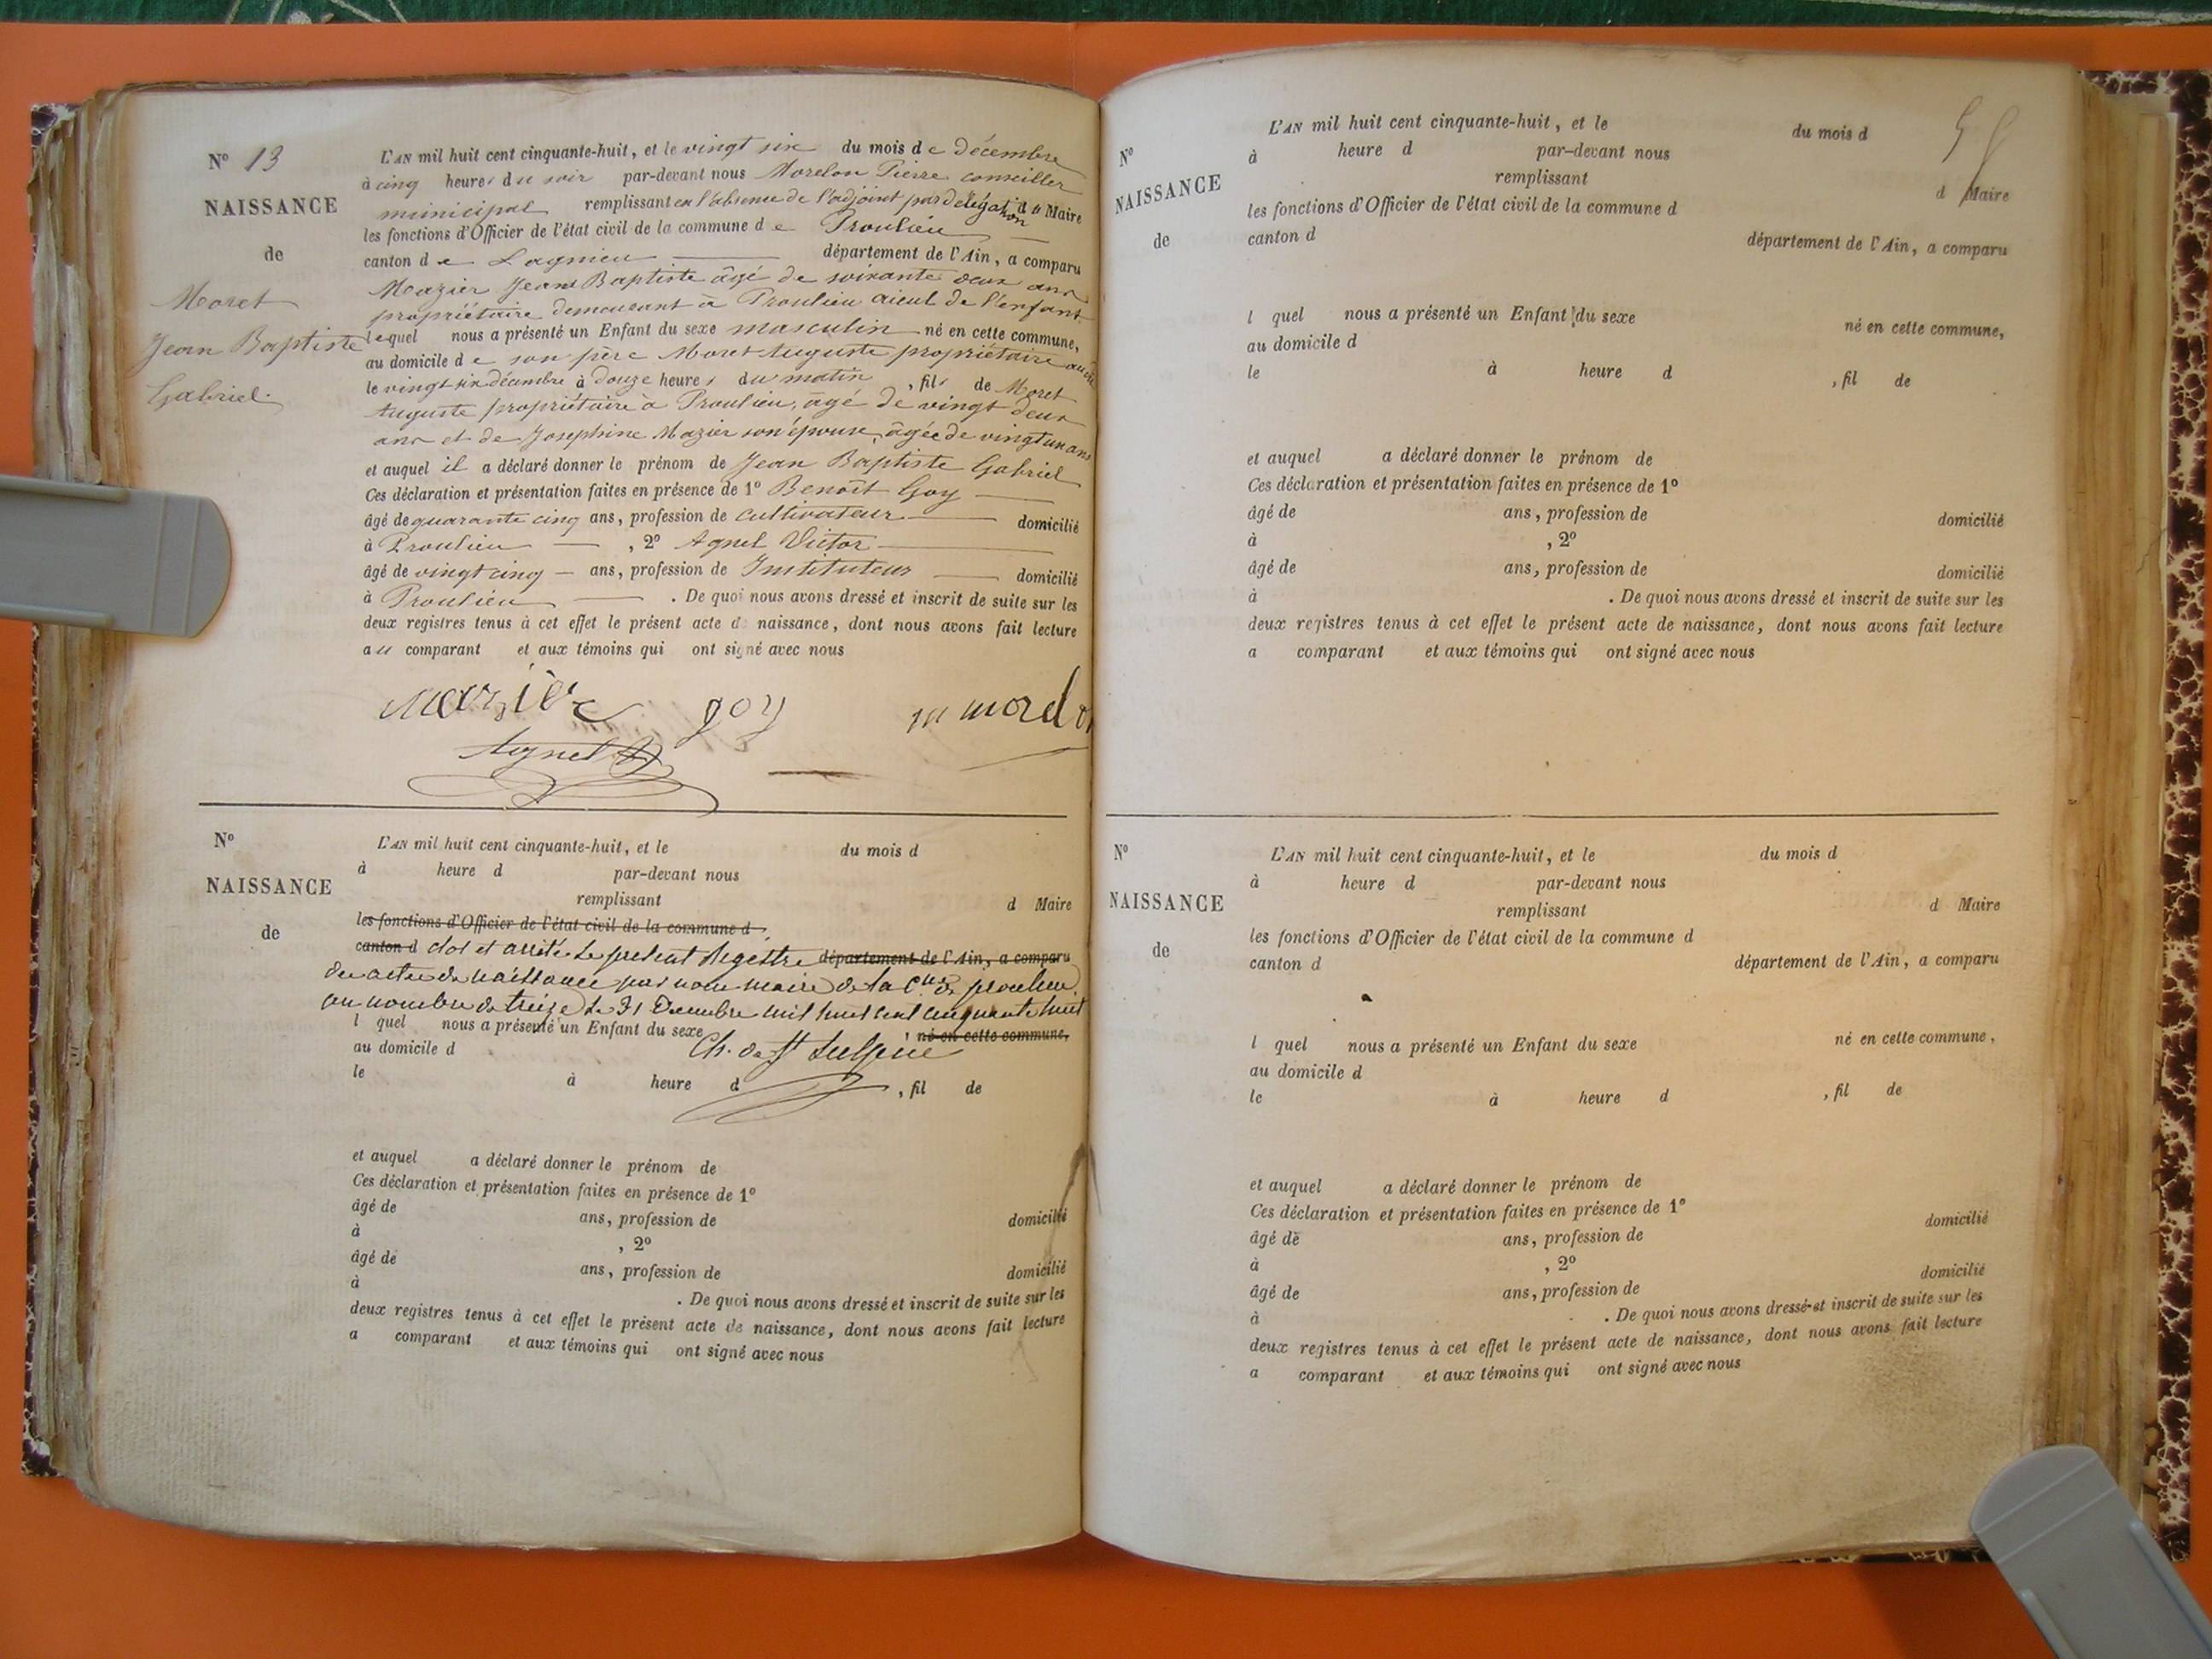 N° 13
NAISSANCE
de
Moret
Jean Baptiste
Gabriel.
L'AN mil huit cent cinquante-huit, et le vingt six du mois de décembre
à cinq heures du soir par-devant nous Morelon Pierre conseiller
municipal remplissant en l'absence de l'adjoint par délégation du Maire
les fonctions d'Officier de l'état civil de la commune de Proulieu
canton de Lagnieu département de l'Ain, a comparu
Mazier Jean Baptiste âgé de soixante deux ans
propriétaire demeurant à Proulieu aieul de l'enfant
lequel nous a présenté un Enfant du sexe masculin né en cette commune,
au domicile de son père Moret Auguste propriétaire
le vingt six décembre à douze heures du matin, fils de Moret
Auguste propriétaire à Proulieu, âgé de vingt deux
ans et de Josephine Mazier son épouse, âgée de vingt un ans
et auquel il a déclaré donner le prénom de Jean Baptiste Gabriel
Ces déclaration et présentation faites en présence de 1° Benoît Goy
âgé de quarante cinq ans, profession de cultivateur domicilié
à Proulieu, 2° Agnel Victor
âgé de vingt cinq ans, profession de Instituteur domicilié
à Proulieu. De quoi nous avons dressé et inscrit de suite sur les
deux registres tenus à cet effet le présent acte de naissance, dont nous avons fait lecture
au comparant et aux témoins qui ont signé avec nous
Mazier goy
Agnel
N°
NAISSANCE
de
L'AN mil huit cent cinquante-huit, et le du mois d
à heure d par-devant nous
remplissant d Maire
les fonctions d'Officier de l'état civil de la commune d
canton d clos et arrêté le présent Registre département de l'Ain, a comparu
des actes de naissance par nous maire de la Cne de proulieu
au nombre de treize le 31 Decembre mil huit cent cinquante huit
l quel nous a présenté un Enfant du sexe né en cette commune,
au domicile d Ch. de St Sulpice
le à heure d , fil de
et auquel a déclaré donner le prénom de
Ces déclaration et présentation faites en présence de 1°
âgé de ans, profession de domicilié
à , 2°
âgé de ans, profession de domicilié
à . De quoi nous avons dressé et inscrit de suite sur les
deux registres tenus à cet effet le présent acte de naissance, dont nous avons fait lecture
a comparant et aux témoins qui ont signé avec nous
N°
NAISSANCE
de
L'AN mil huit cent cinquante-huit, et le du mois d
à heure d par-devant nous
remplissant d Maire
les fonctions d'Officier de l'état civil de la commune d
canton d département de l'Ain, a comparu
l quel nous a présenté un Enfant du sexe né en cette commune,
au domicile d
le à heure d , fil de
et auquel a déclaré donner le prénom de
Ces déclaration et présentation faites en présence de 1°
âgé de ans, profession de domicilié
à , 2°
âgé de ans, profession de domicilié
à . De quoi nous avons dressé et inscrit de suite sur les
deux registres tenus à cet effet le présent acte de naissance, dont nous avons fait lecture
a comparant et aux témoins qui ont signé avec nous
N°
NAISSANCE
de
L'AN mil huit cent cinquante-huit, et le du mois d
à heure d par-devant nous
remplissant d Maire
les fonctions d'Officier de l'état civil de la commune d
canton d département de l'Ain, a comparu
l quel nous a présenté un Enfant du sexe né en cette commune,
au domicile d
le à heure d , fil de
et auquel a déclaré donner le prénom de
Ces déclaration et présentation faites en présence de 1°
âgé de ans, profession de domicilié
à , 2°
âgé de ans, profession de domicilié
à . De quoi nous avons dressé et inscrit de suite sur les
deux registres tenus à cet effet le présent acte de naissance, dont nous avons fait lecture
a comparant et aux témoins qui ont signé avec nous